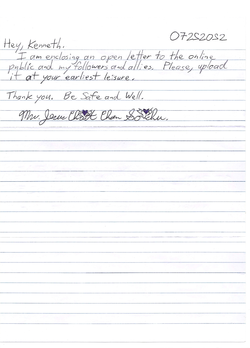 07252032
Hey, Kenneth.
I am enclosing an open letter to the online
public and my followers and allies. Please, upload
it at your earliest leisure.
Thank you. Be Safe and Well.